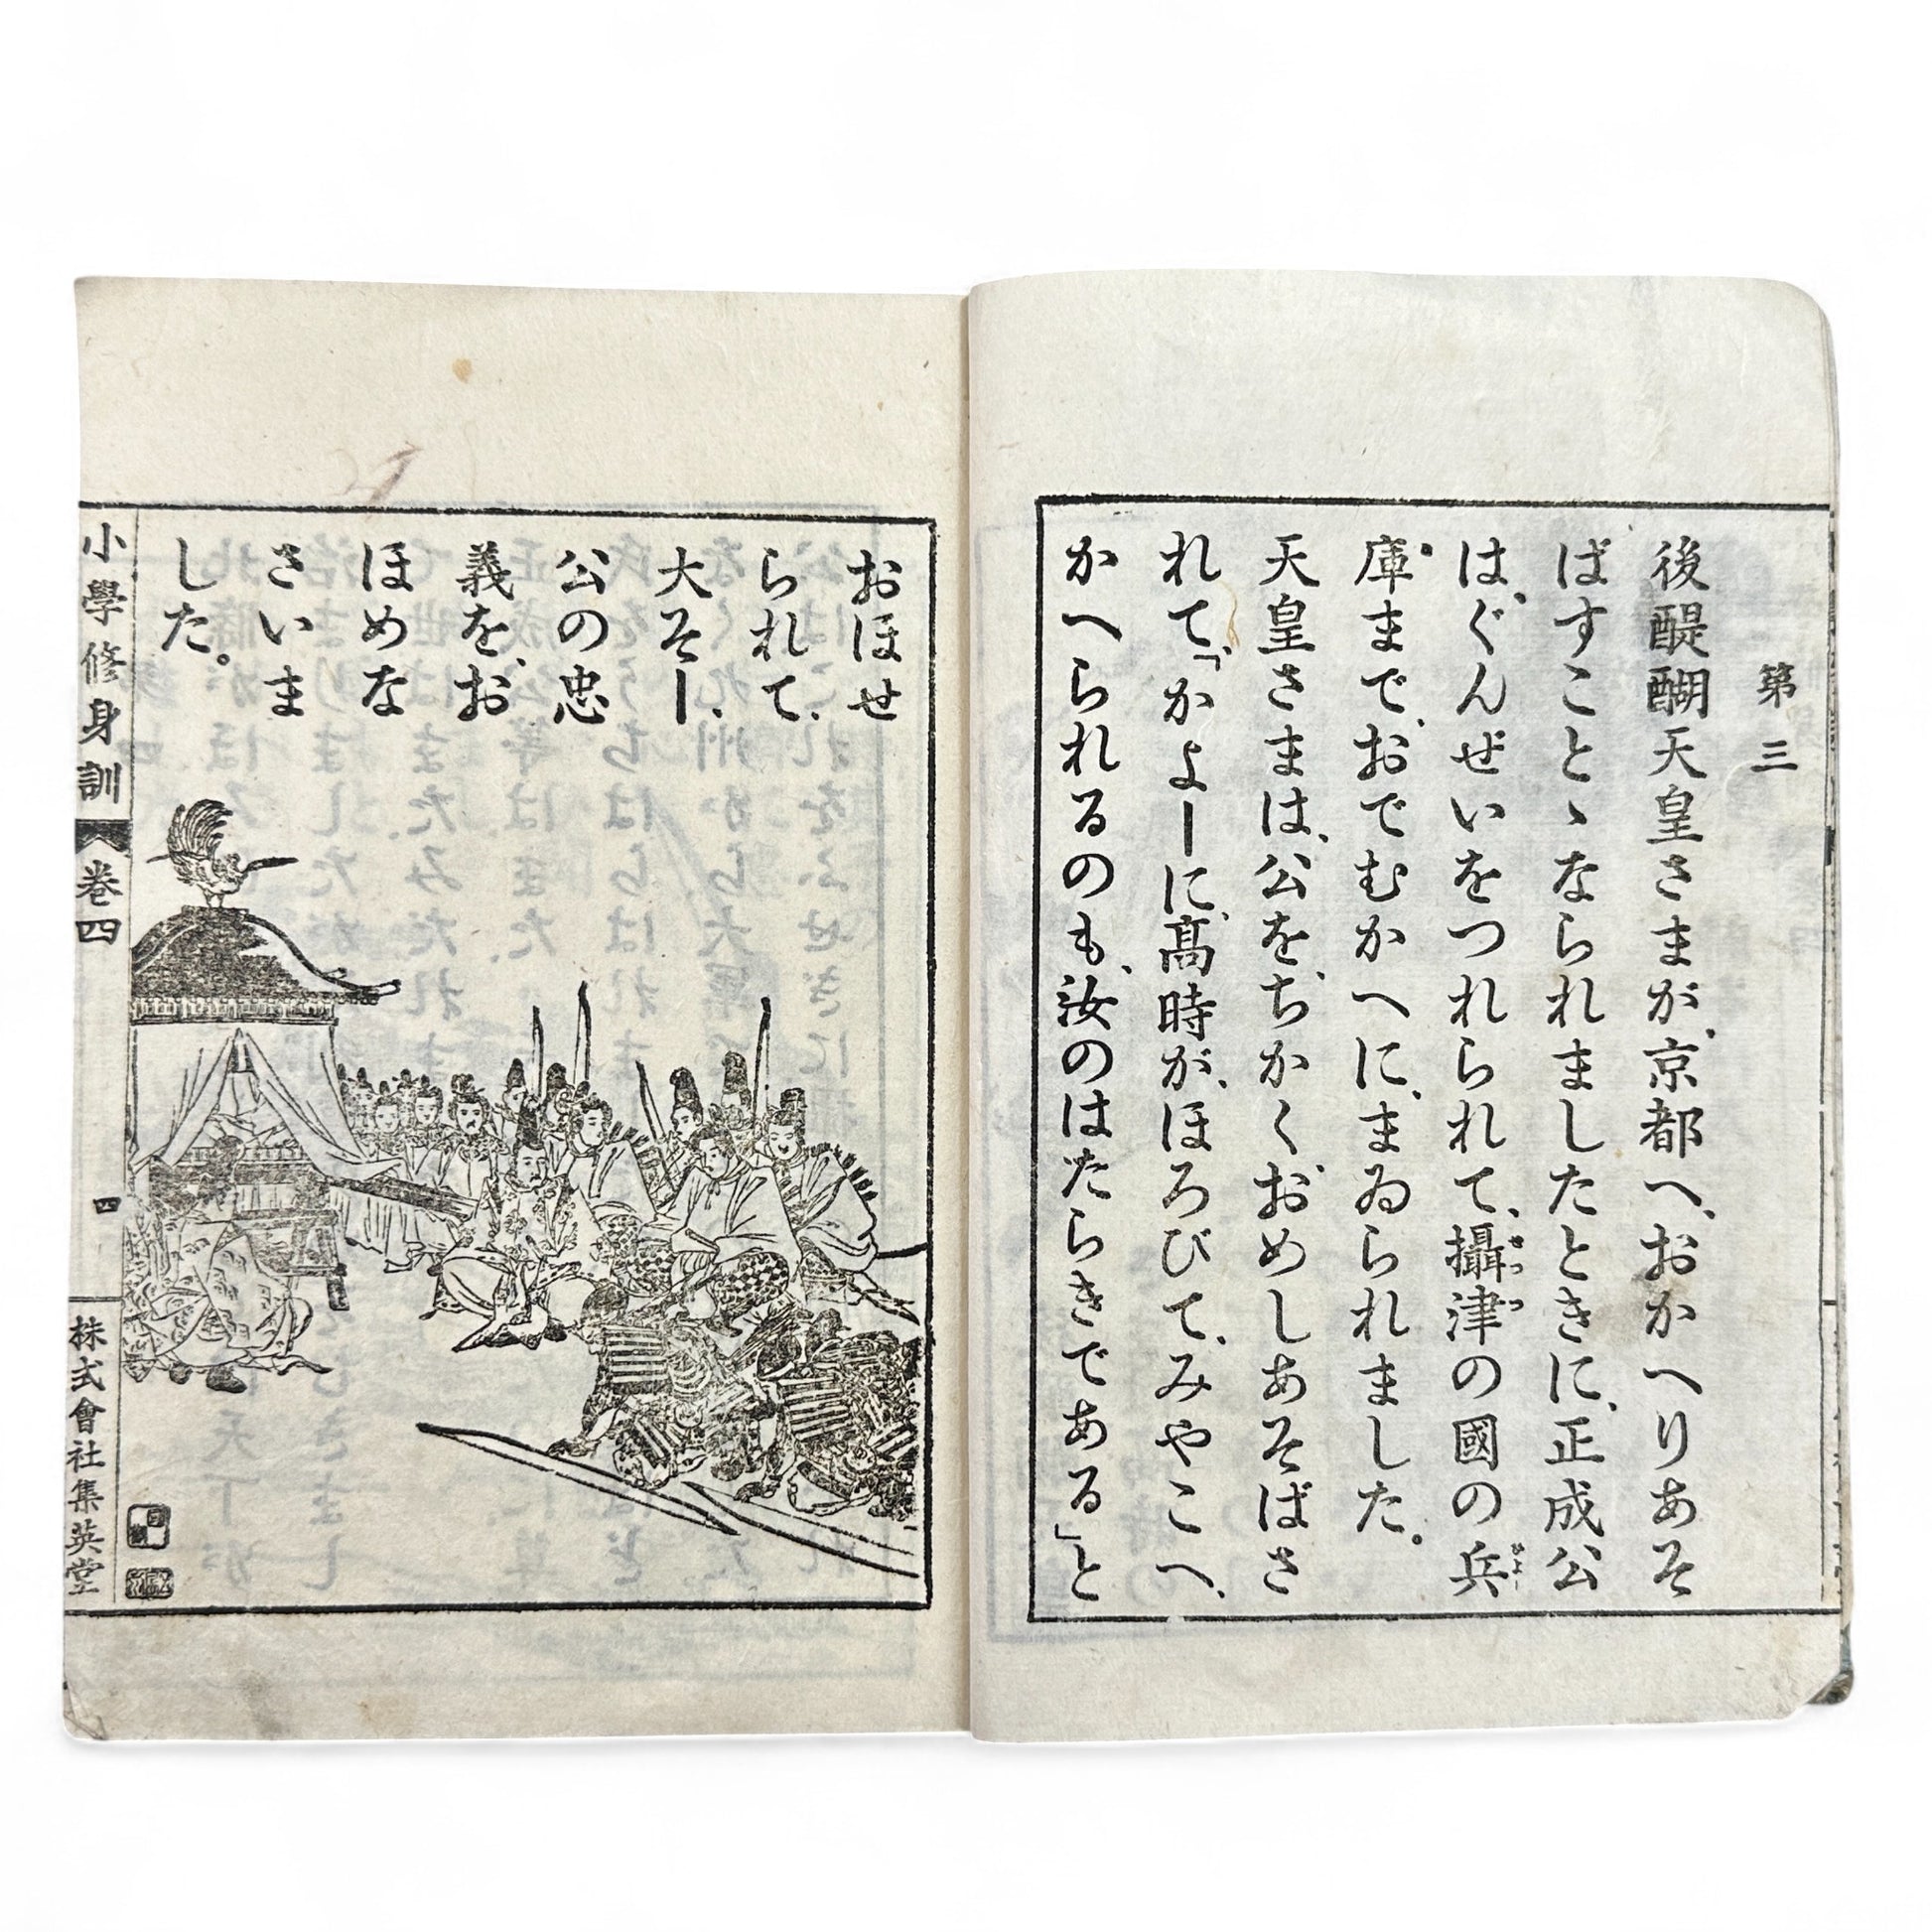 第三
後醍醐天皇さまが、京都へ、おかへりあそ
ばすことゝなられましたときに、正成公
は、ぐんぜいをつれられて、攝津の國の兵
庫まで、おでむかへに、まゐられました。
天皇さまは、公を、ちかく、おめしあそばさ
れて、「かよーに、髙時が、ほろびて、みやこへ、
かへられるのも、汝のはたらきである」と
おほせ
られて、
大そー、
公の忠
義を、お
ほめな
さいま
した。
小學修身訓
卷四
四
株式會社集英堂